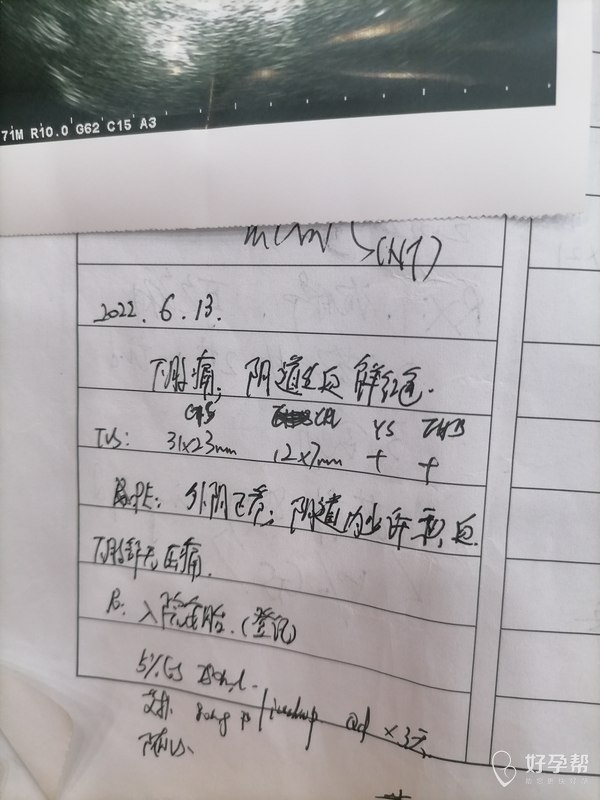 71M R10.0 G62 C15 A3
(NT)
2022.6.13.
下腹痛，阴道出血 鲜红色.
GS CRL YS FHB
TVS: 31×23mm 12×7mm + +
PE: 外阴已产；阴道内少许积血
下腹部无压痛.
R: 入院保胎.(登记)
5%GS 250ml
80mg qd ×3天
好孕帮